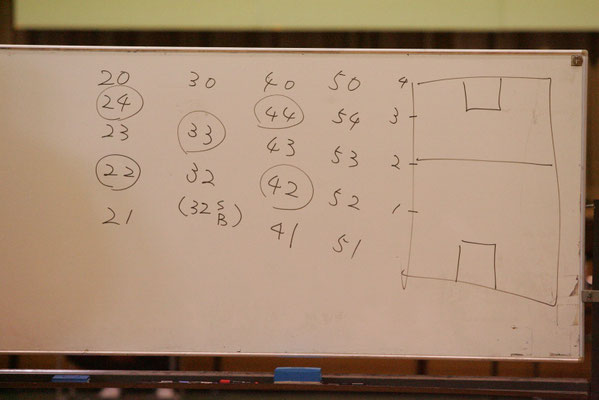 20 30 40 50 4
24 44 54 3
23 33 43 53 2
22 32 42 52 1
21 (32 S B) 41 51